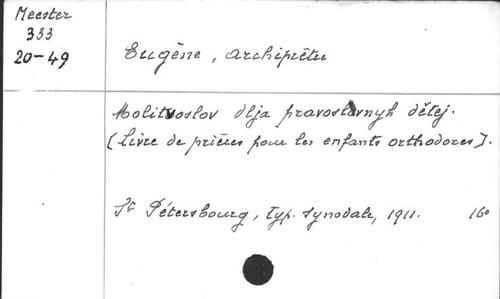 Meester
333
20-49
Eugène, archiprêtre
Molitvoslov dlja pravoslavnyh dětej.
[livre de prières pour les enfants orthodoxes].
St Pétersbourg, typ. synodale, 1911. 16°